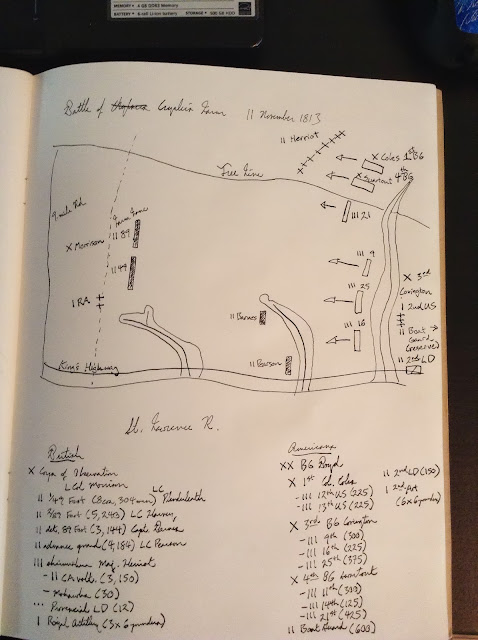 MEMORY • 4 GB DDR3 Memory
BATTERY • 6-cell Li-Ion battery STORAGE • 500 GB HDD
Battle of Crysler's Farm 11 November 1813
II Herriot
X Coles 1st BG
X Swartout 4th BG
Tree Line
III 21
9 mile Rd.
Farm Lane
II 89
X Morrison
II 49
I RA
III 9
III 25
III 16
X 3rd
Covington
I 2nd US
II Boat →
Guard
(reserve)
II 2nd LD
II Barnes
II Pearson
King's Highway
St. Lawrence R.
British
X Corps of Observation
LCol Morrison
II 1/49 Foot (8 co, 304 men) LC Plenderleath
II 2/89 Foot (5, 243) LC Harvey,
II det, 89 Foot (3, 144) Capt Barnes
II advance guard (4, 184) LC Pearson
III skirmishers Maj. Heriot
- II CA volt. (3, 150)
- Mohawks (30)
••• Provincial LD (12)
I Royal Artillery (3 x 6 pounders)
Americans
XX BG Boyd
X 1st Col. Coles
- III 12th US (225)
- III 13th US (225)
X 3rd BG Covington
- III 9th (300)
- III 16th (225)
- III 25th (375)
X 4th BG Swartout
- III 11th (300)
- III 14th (125)
- III 21st (425)
II Boat Guard (600)
II 2nd LD (150)
I 2nd Art
(6 x 6 pounders)